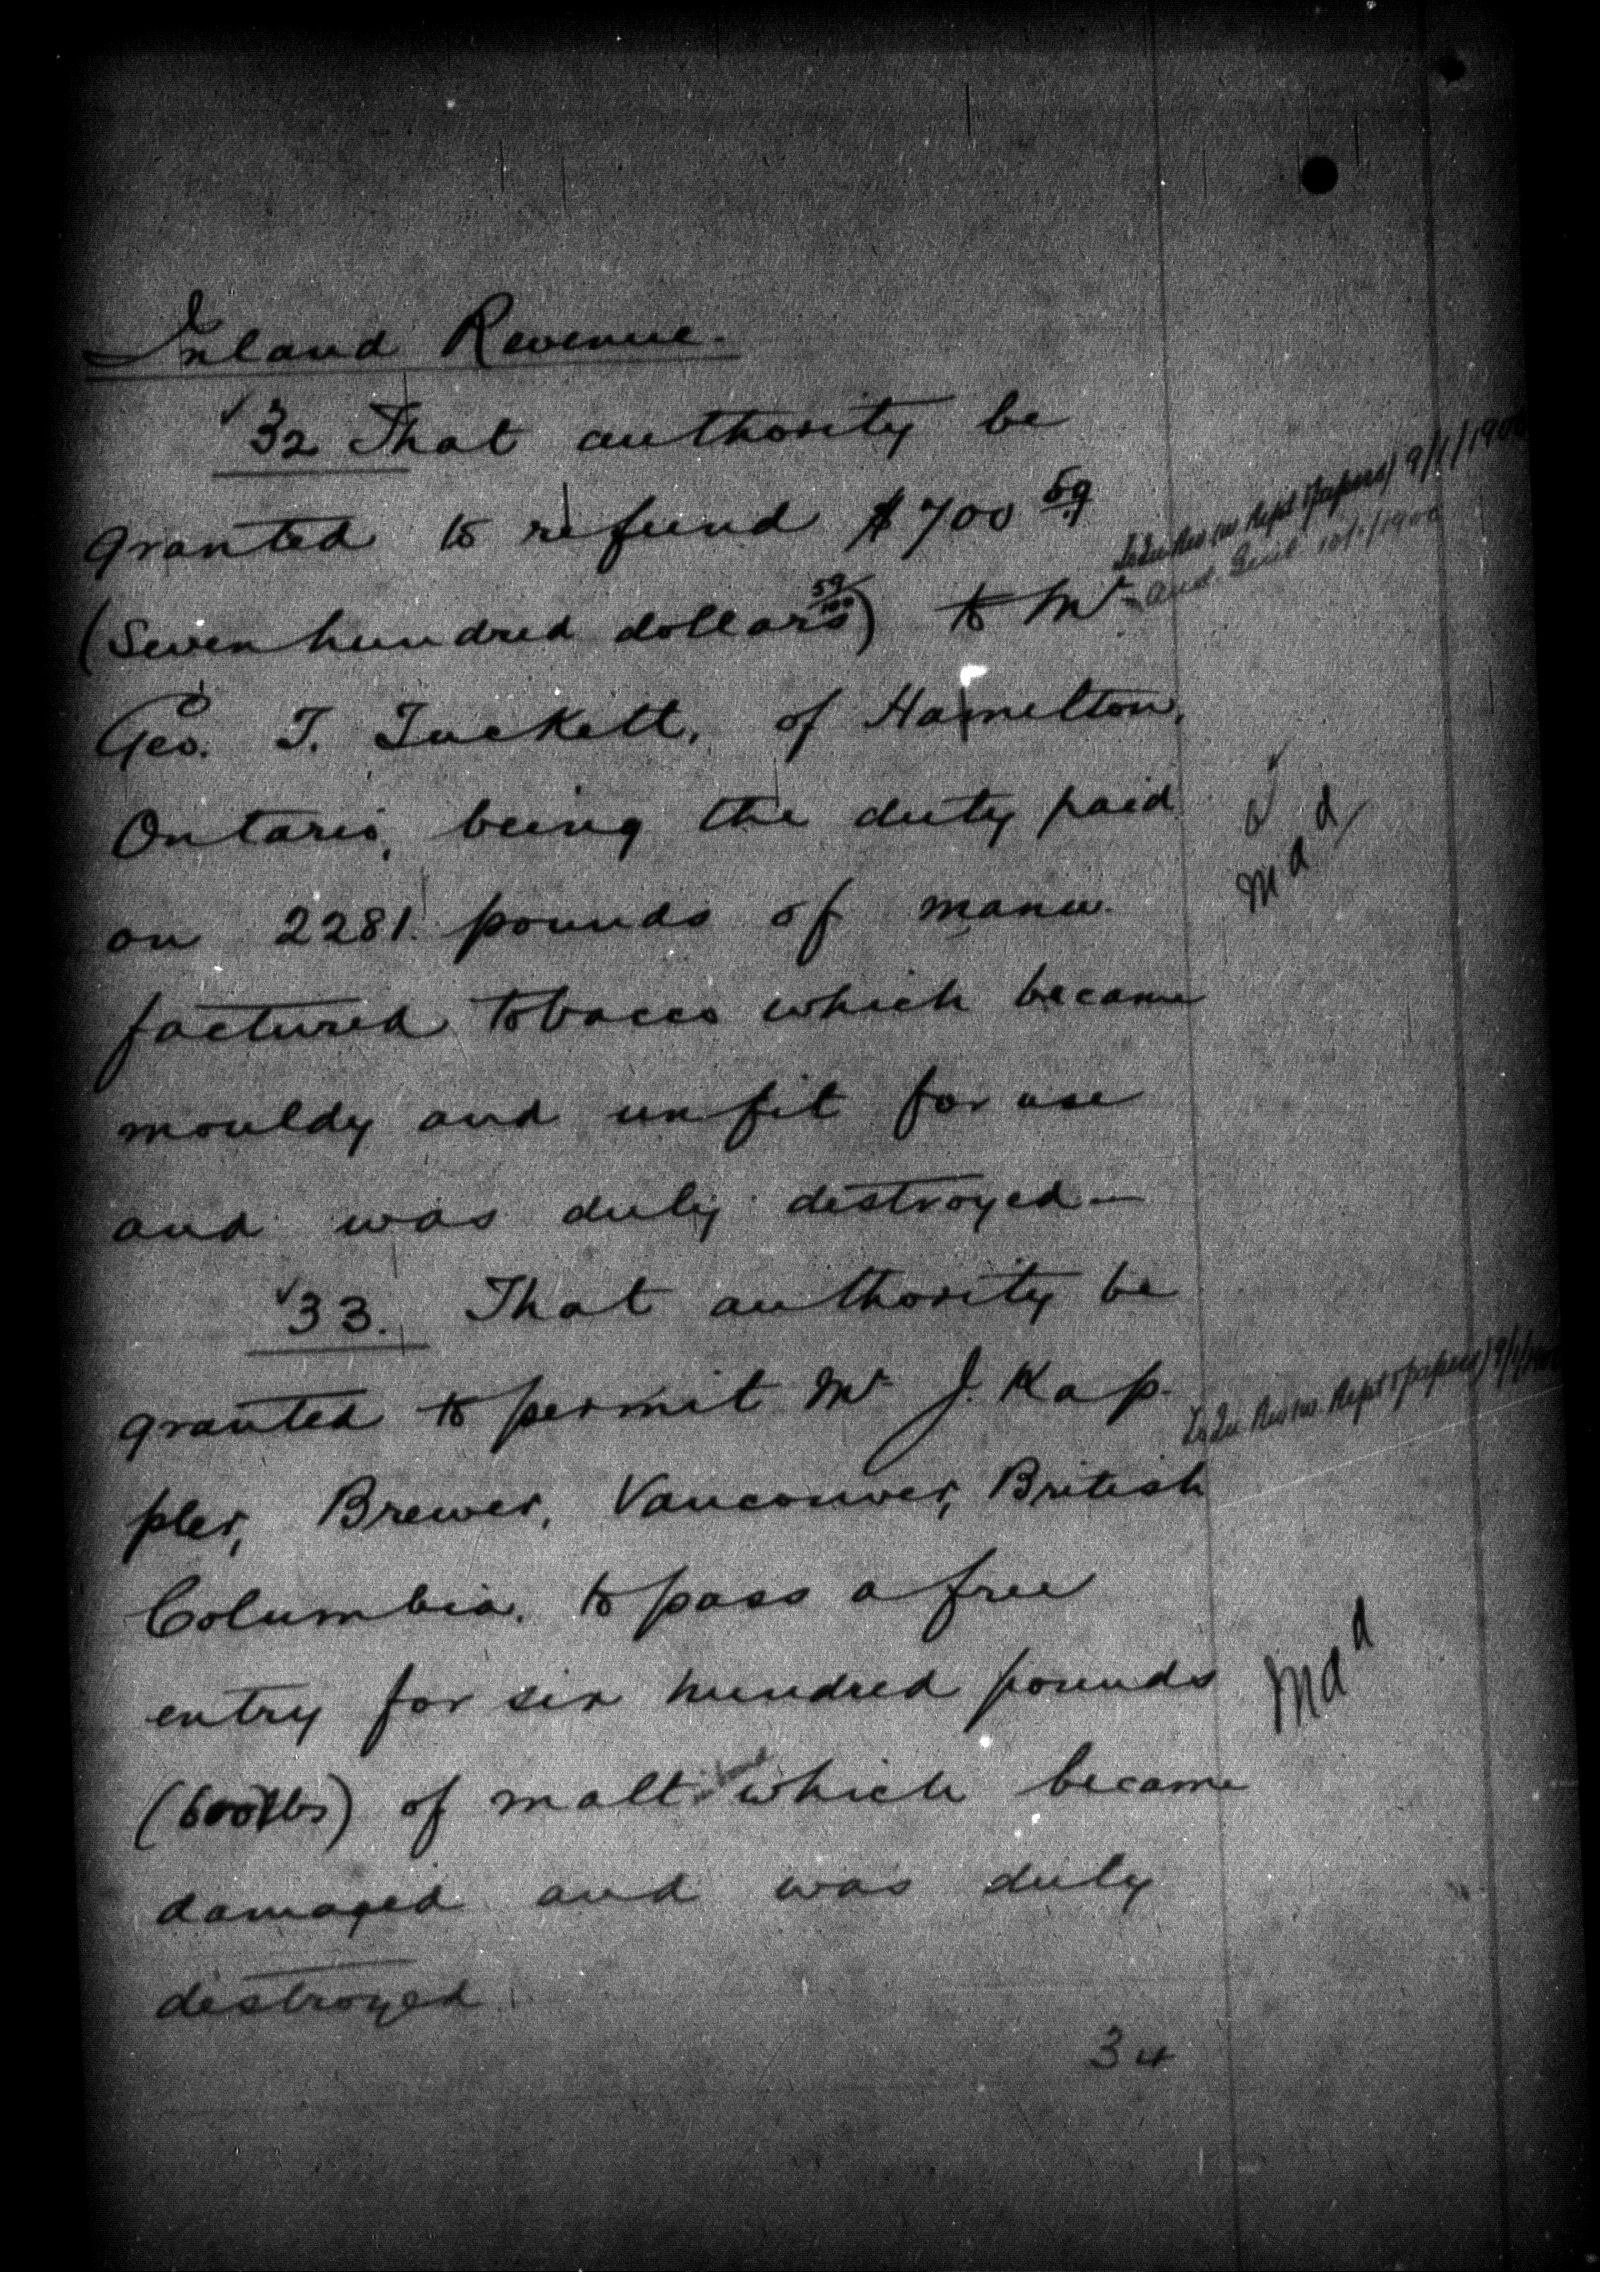 Inland Revenue.
✓32 That authority be
granted to refund $700 59
(Seven hundred dollars 59/100) to Mr
Geo. T. Tuckett, of Hamilton,
Ontario, being the duty paid
on 2281 pounds of manu-
factured tobacco which became
mouldy and unfit for use
and was duly destroyed—
✓33. That authority be
granted to permit Mr J. Kap-
pler, Brewer, Vancouver, British
Columbia, to pass a free
entry for six hundred pounds
(600 lbs) of malt which became
damaged and was duly
destroyed
34
Rept & papers) 9/1/1900
Aud. Genl 10/1/1900
Rept & papers) 9/1/1900